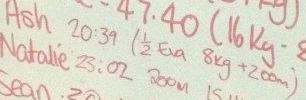 - 47.40 (16kg - 8
Ash 20:39 (½ Eva 8kg + 200m)
Natalie 23:02 200m 15
Sean